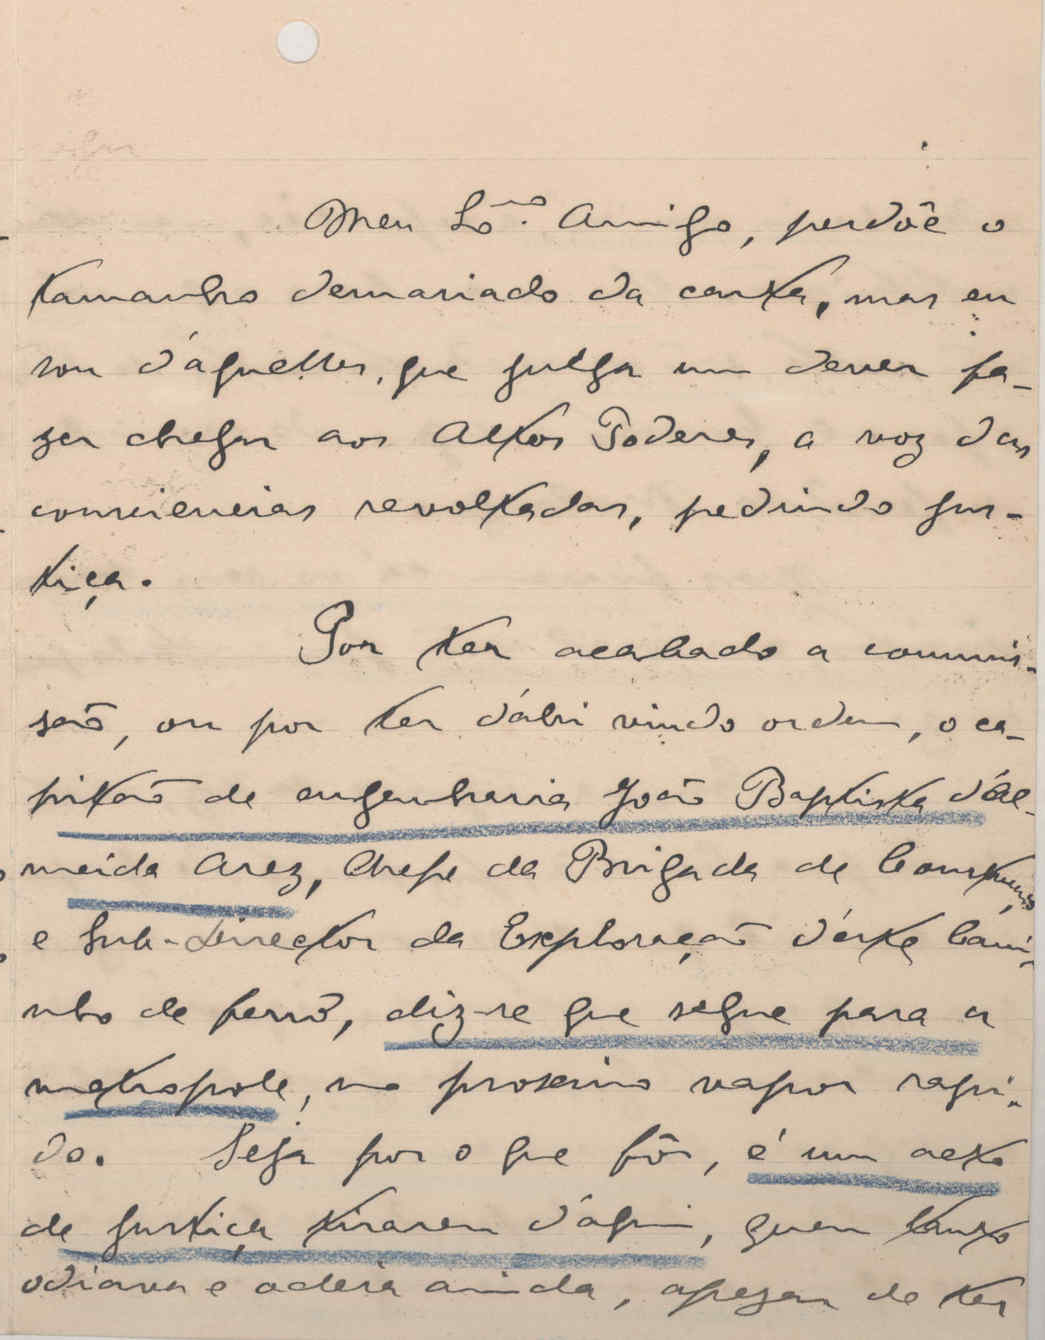 Meu Exmo. Amigo, perdôe o
tamanho demasiado da carta, mas eu
sou d'aquelles, que julga um dever fa-
zer chegar aos Altos Poderes, a voz das
consciencias revoltadas, pedindo jus-
tiça.
Por ter acabado a commis-
são, ou por ter d'ahi vindo ordem, o ca-
pitão de engenharia João Baptista d'Al-
meida Arez, Chefe da Brigada de
e Sub-Director da Exploração d'éste Cami-
nho de ferro, diz-se que segue para a
metropole, no proximo vapor rapi-
do. Seja por o que fôr, é um acto
de justiça tirarem d'aqui, quem tanto
odiava e odeia ainda, apezar de ter